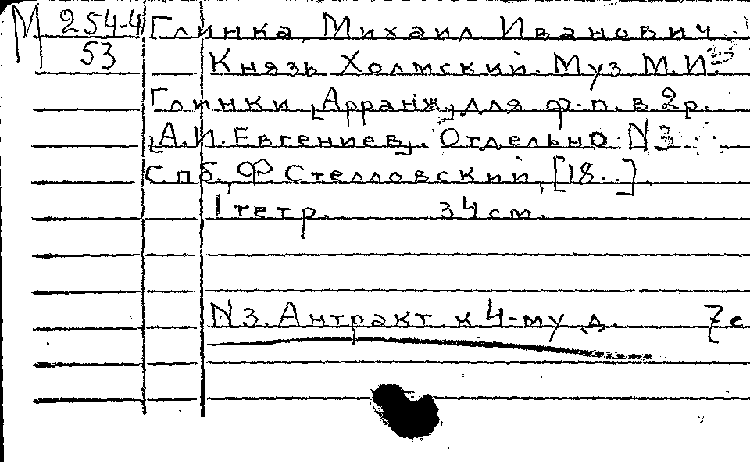 М 254-4
53
Глинка, Михаил Иванович.
Князь Холмский. Муз. М.И.
Глинки [Арранж.] для ф.-п. в 2 р.
[А.И. Евгениев]. Отдельно N3
Спб, Ф. Стелловский, [18..]
1 тетр. 34 см.
N3. Антракт к 4-му д. 7 с